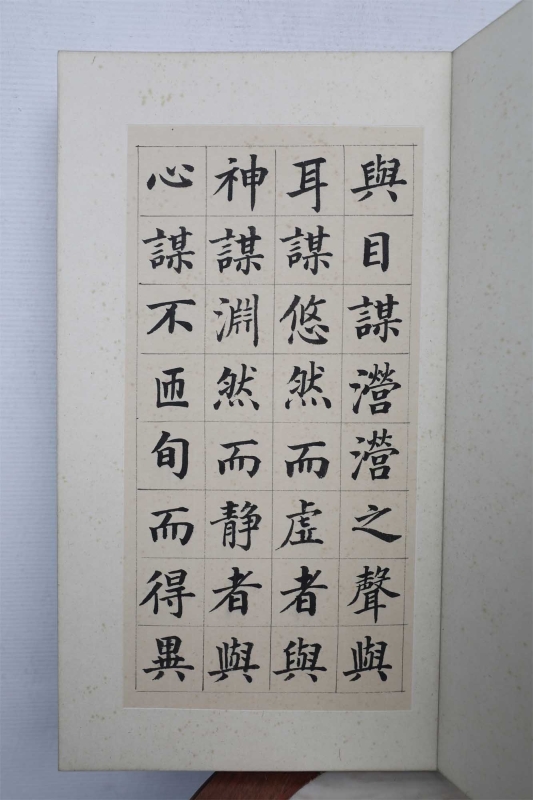 與目謀瀯瀯之聲與
耳謀悠然而虛者與
神謀淵然而静者與
心謀不匝旬而得異